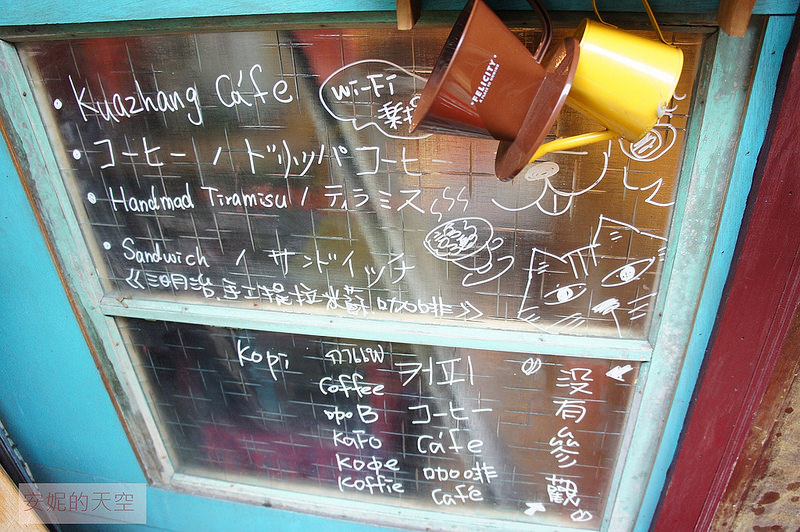 Kuazhang Cáfe
Wi-Fi
FELICITY
コーヒー / ドリッパコーヒー
Handmad Tiramisu / ティラミス
Sandwich / サンドイッチ
《三明治.手工提拉米蘇 咖啡》
Kopi กาแฟ 커피
Coffee
コーヒー
Kafo Cáfe
Кофе 咖啡
Koffie Café
沒有參觀
安妮的天空